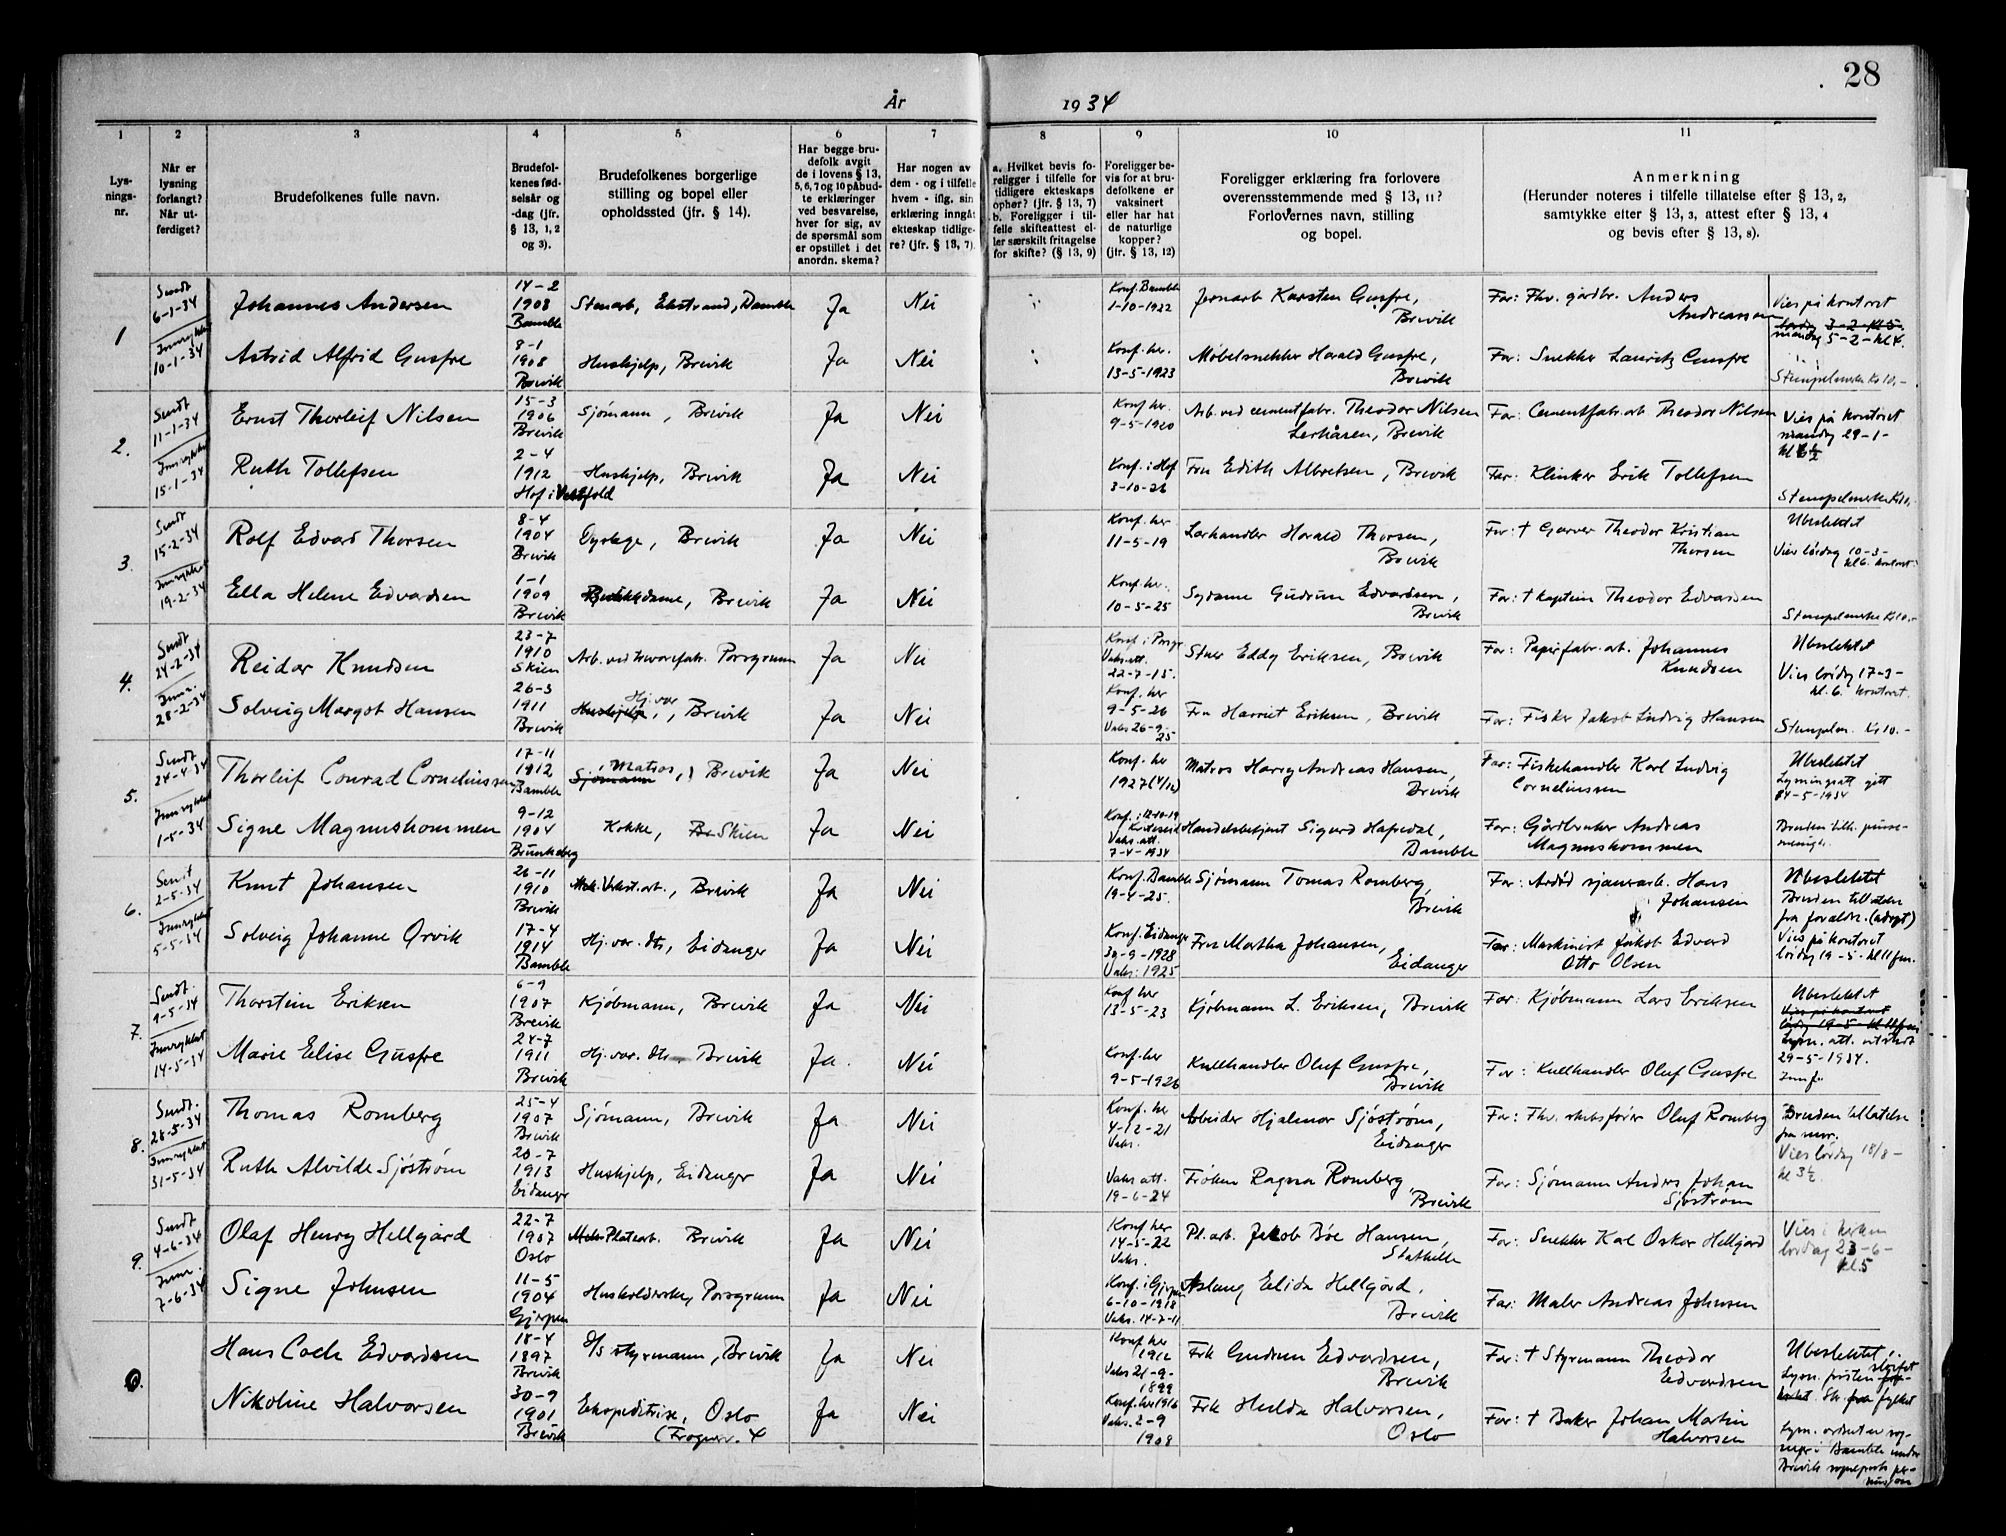 28
År 1934
1 2 3 4 5 6 7 8 9 10 11
Lys-
nings-
nr.
Når er
lysning
forlangt?
Når ut-
ferdiget?
Brudefolkenes fulle navn.
Brudefol-
kenes fød-
selsår og
-dag (jfr.
§ 13, 1, 2
og 3).
Brudefolkenes borgerlige
stilling og bopel eller
opholdssted (jfr. § 14).
Har begge bru-
defolk avgit
de i lovens § 13,
5, 6, 7 og 10 påbud-
te erklæringer
ved besvarelse,
hver for sig, av
de spørsmål som
er opstillet i det
anordn. skema?
Har nogen av
dem - og i tilfelle
hvem - iflg. sin
erklæring inngått
ekteskap tidlige-
re? (jfr. § 13, 7).
a. Hvilket bevis fo-
religger i tilfelle for
tidligere ekteskaps
ophør? (jfr. § 13, 7)
b. Foreligger i til-
felle skifteattest el-
ler særskilt fritagelse
for skifte? (§ 13, 9)
Foreligger be-
vis for at bru-
defolkene er
vaksinert
eller har hat
de naturlige
kopper?
(jfr. § 13, 12)
Foreligger erklæring fra forlovere
overensstemmende med § 13, 11?
Forlovernes navn, stilling
og bopel.
Anmerkning
(Herunder noteres i tilfelle tillatelse efter § 13, 2,
samtykke efter § 13, 3, attest efter § 13, 4
og bevis efter § 13, 8).
1
Sendt
6-1-34
Innrykket
10-1-34
Johannes Andersen
14-2
1908
Bamble
Stenarb, Ekstrand, Bamble
Ja
Nei
Konf. Bamble
1-10-1922
Jernarb Karsten Gusfre,
Brevik
Far: Fhv. gårdbr. Anders
Andreassen
Vies på kontoret
lørdag 3-2-kl 5.
mandag 5-2-kl 4.
Astrid Alfrid Gusfre
8-1
1908
Brevik
Hushjelp, Brevik
Ja
Nei
Konf. her.
13-5-1923
Møbelsnekker Harald Gusfre,
Brevik
Far: Snekker Lauritz Gusfre
Stempelmerke Kr 10,-
2.
Sendt
11-1-34
Innrykket
15-1-34
Ernst Thorleif Nilsen
15-3
1906
Brevik
Sjømann, Brevik
Ja
Nei
Konf her.
9-5-1920
Arb. ved cementfabr. Theodor Nilsen
Lerkåsen, Brevik
Far: Cementfabr.arb Theodor Nilsen
Vies på kontoret
mandag 29-1-
kl 6½
Ruth Tollefsen
2-4
1912
Hof i Vestfold
Hushjelp, Brevik
Ja
Nei
Konf. i Hof
3-10-26
Fru Edith Albretsen, Brevik
Far: Klinker Erik Tollefsen
Stempelmerke Kr 10,-
3.
Sendt
15-2-34
Innrykket
19-2-34
Rolf Edvard Thorsen
8-4
1904
Brevik
Dyrlege, Brevik
Ja
Nei
Konf. her
11-5-19
Lærhandler Harald Thorsen,
Brevik
Far: † Garver Theodor Kristian
Thorsen
Ubeslektet
Vies lørdag 10-3-
kl 6. kontoret.
Ella Helene Edvardsen
1-1
1909
Brevik
Butikkdame, Brevik
Ja
Nei
Konf. her.
10-5-25
Sydame Gudrun Edvardsen,
Brevik
Far: † Kaptein Theodor Edvardsen
Stempelmerke Kr 10,-
4.
Sendt
24-2-34
Innr.
28-2-34
Reidar Knudsen
23-7
1910
Skien
Arb. ved hvorefabr. Porsgrunn
Ja
Nei
Konf. i Porsgr
Vaks. att.
22-7-15.
Stuer Eddy Eriksen, Brevik
Far: Papirfabr. arb. Johannes
Knudsen
Ubeslektet
Vies lørdag 17-3-
kl. 6. kontoret.
Solveig Margot Hansen
26-3
1911
Brevik
Hushjelp, Hj. vær, Brevik
Ja
Nei
Konf. her
9-5-26
Vaks 26-9-
25
Fru Harriet Eriksen, Brevik
Far: Fisker Jakob Ludvig Hansen
Stempelm. Kr 10.-
5.
Sendt
24-4-34
Innrykket
1-5-34
Thorleif Conrad Corneliussen
17-11
1912
Bamble
Sjømann Matros, Brevik
Ja
Nei
Konf. her
1927 (4/12)
Matros Harry Andreas Hansen,
Brevik
Far: Fiskehandler Karl Ludvig
Corneliussen
Ubeslektet
Lysningsatt gitt
24-5-1934
Signe Magnushommen
9-12
1904
Brunkeberg
Kokke, Br Skien
Ja
Nei
Vaks. att.
7-4-1934
Handelsbetjent Sigurd Hafsdal,
Bamble
Far: Gårdbruker Andreas
Magnushommen
6.
Sendt
2-5-34
Innrykket
5-5-34
Knut Johansen
26-11
1910
Brevik
Mek. Verkst. arb., Brevik
Ja
Nei
Konf. Bamble
19-4-25.
Sjømann Tomas Romberg,
Brevik
Far: Avdød sjauerarb. Hans
Johansen
Ubeslektet
Bruden tillatelse
fra foreldr. (adopt)
Vies på kontoret
lørdag 19-5-kl 11 fm.
Solveig Johanne Ørvik
17-4
1914
Bamble
Hj. vær. dtr, Eidanger
Ja
Nei
Konf. Eidanger
30-9-1928
Vaks: 1925
Fru Martha Johansen,
Eidanger
Far: Maskinist Jakob Edvard
Otto Olsen
7.
Sendt
9-5-34
Innrykket
14-5-34
Thorstein Eriksen
6-9
1907
Brevik
Kjøbmann, Brevik
Ja
Nei
Konf her
13-5-23
Kjøbmann L. Eriksen, Brevik
Far: Kjøbmann Lars Eriksen
Ubeslektet
Vies på kontoret
lørdag 19-5-kl 11 fm
Lysn. att. utstedt
29-5-1934.
Marie Elise Gusfre
24-7
1911
Brevik
Hj. vær. dtr Brevik
Ja.
Nei
Konf. her
9-5-1926
Kullhandler Oluf Gusfre,
Brevik
Far: Kullhandler Oluf Gusfre
8.
Sendt.
28-5-34
Innrykket
31-5-34
Thomas Romberg
25-4
1907
Brevik
Sjømann, Brevik
Ja
Nei
Konf. her
4-12-21
Vaks.
Arbeider Hjalmar Sjøstrøm,
Eidanger
Far: Fhv. skibsfører Oluf Romberg
Bruden tillatelse
fra mor.
Vies lørdag 18/8-
kl 3½
Ruth Alvilde Sjøstrøm
20-7
1913
Eidanger
Hushjelp, Eidanger
Ja
Nei
Vaks att.
19-6-24
Frøken Ragna Romberg
Brevik
Far: Sjømann Anders Johan
Sjøstrøm
9.
Sendt
4-6-34
Innr.
7-6-34
Olaf Henry Hellgård
22-7
1907
Oslo
Mek. Platearb. Brevik
Ja
Nei
Konf her
14-5-22
Vaks.
Pl. arb. Jakob Bøe Hansen,
Stathelle
Far: Snekker Karl Oskar Hellgård
Vies i kirken
lørdag 23-6-
kl 5
Signe Johnsen
11-5
1904
Gjerpen
Husholderske, Porsgrunn
Ja
Nei
Konf. i Gjerpen
6-10-1918
Vaks. 14-7-11
Aslaug Elida Hellgård,
Brevik
Far: Maler Andreas Johnsen
Hans Coch Edvardsen
18-4
1897
Brevik
D/s styrmann, Brevik
Ja
Nei
Konf her
1912
Vaks 21-9-
1899
Frk Gudrun Edvardsen,
Brevik
Far: † Styrmann Theodor
Edvardsen
Ubeslektet
Nikoline Halvorsen
30-9
1901
Brevik
Ekspeditrise, Oslo
(Frognerv. 4
Ja
Nei
Konf. her 1916
Vaks. 2-9
1908
Frk Hulda Halvorsen,
Oslo
Far: † Baker Johan Martin
Halvorsen